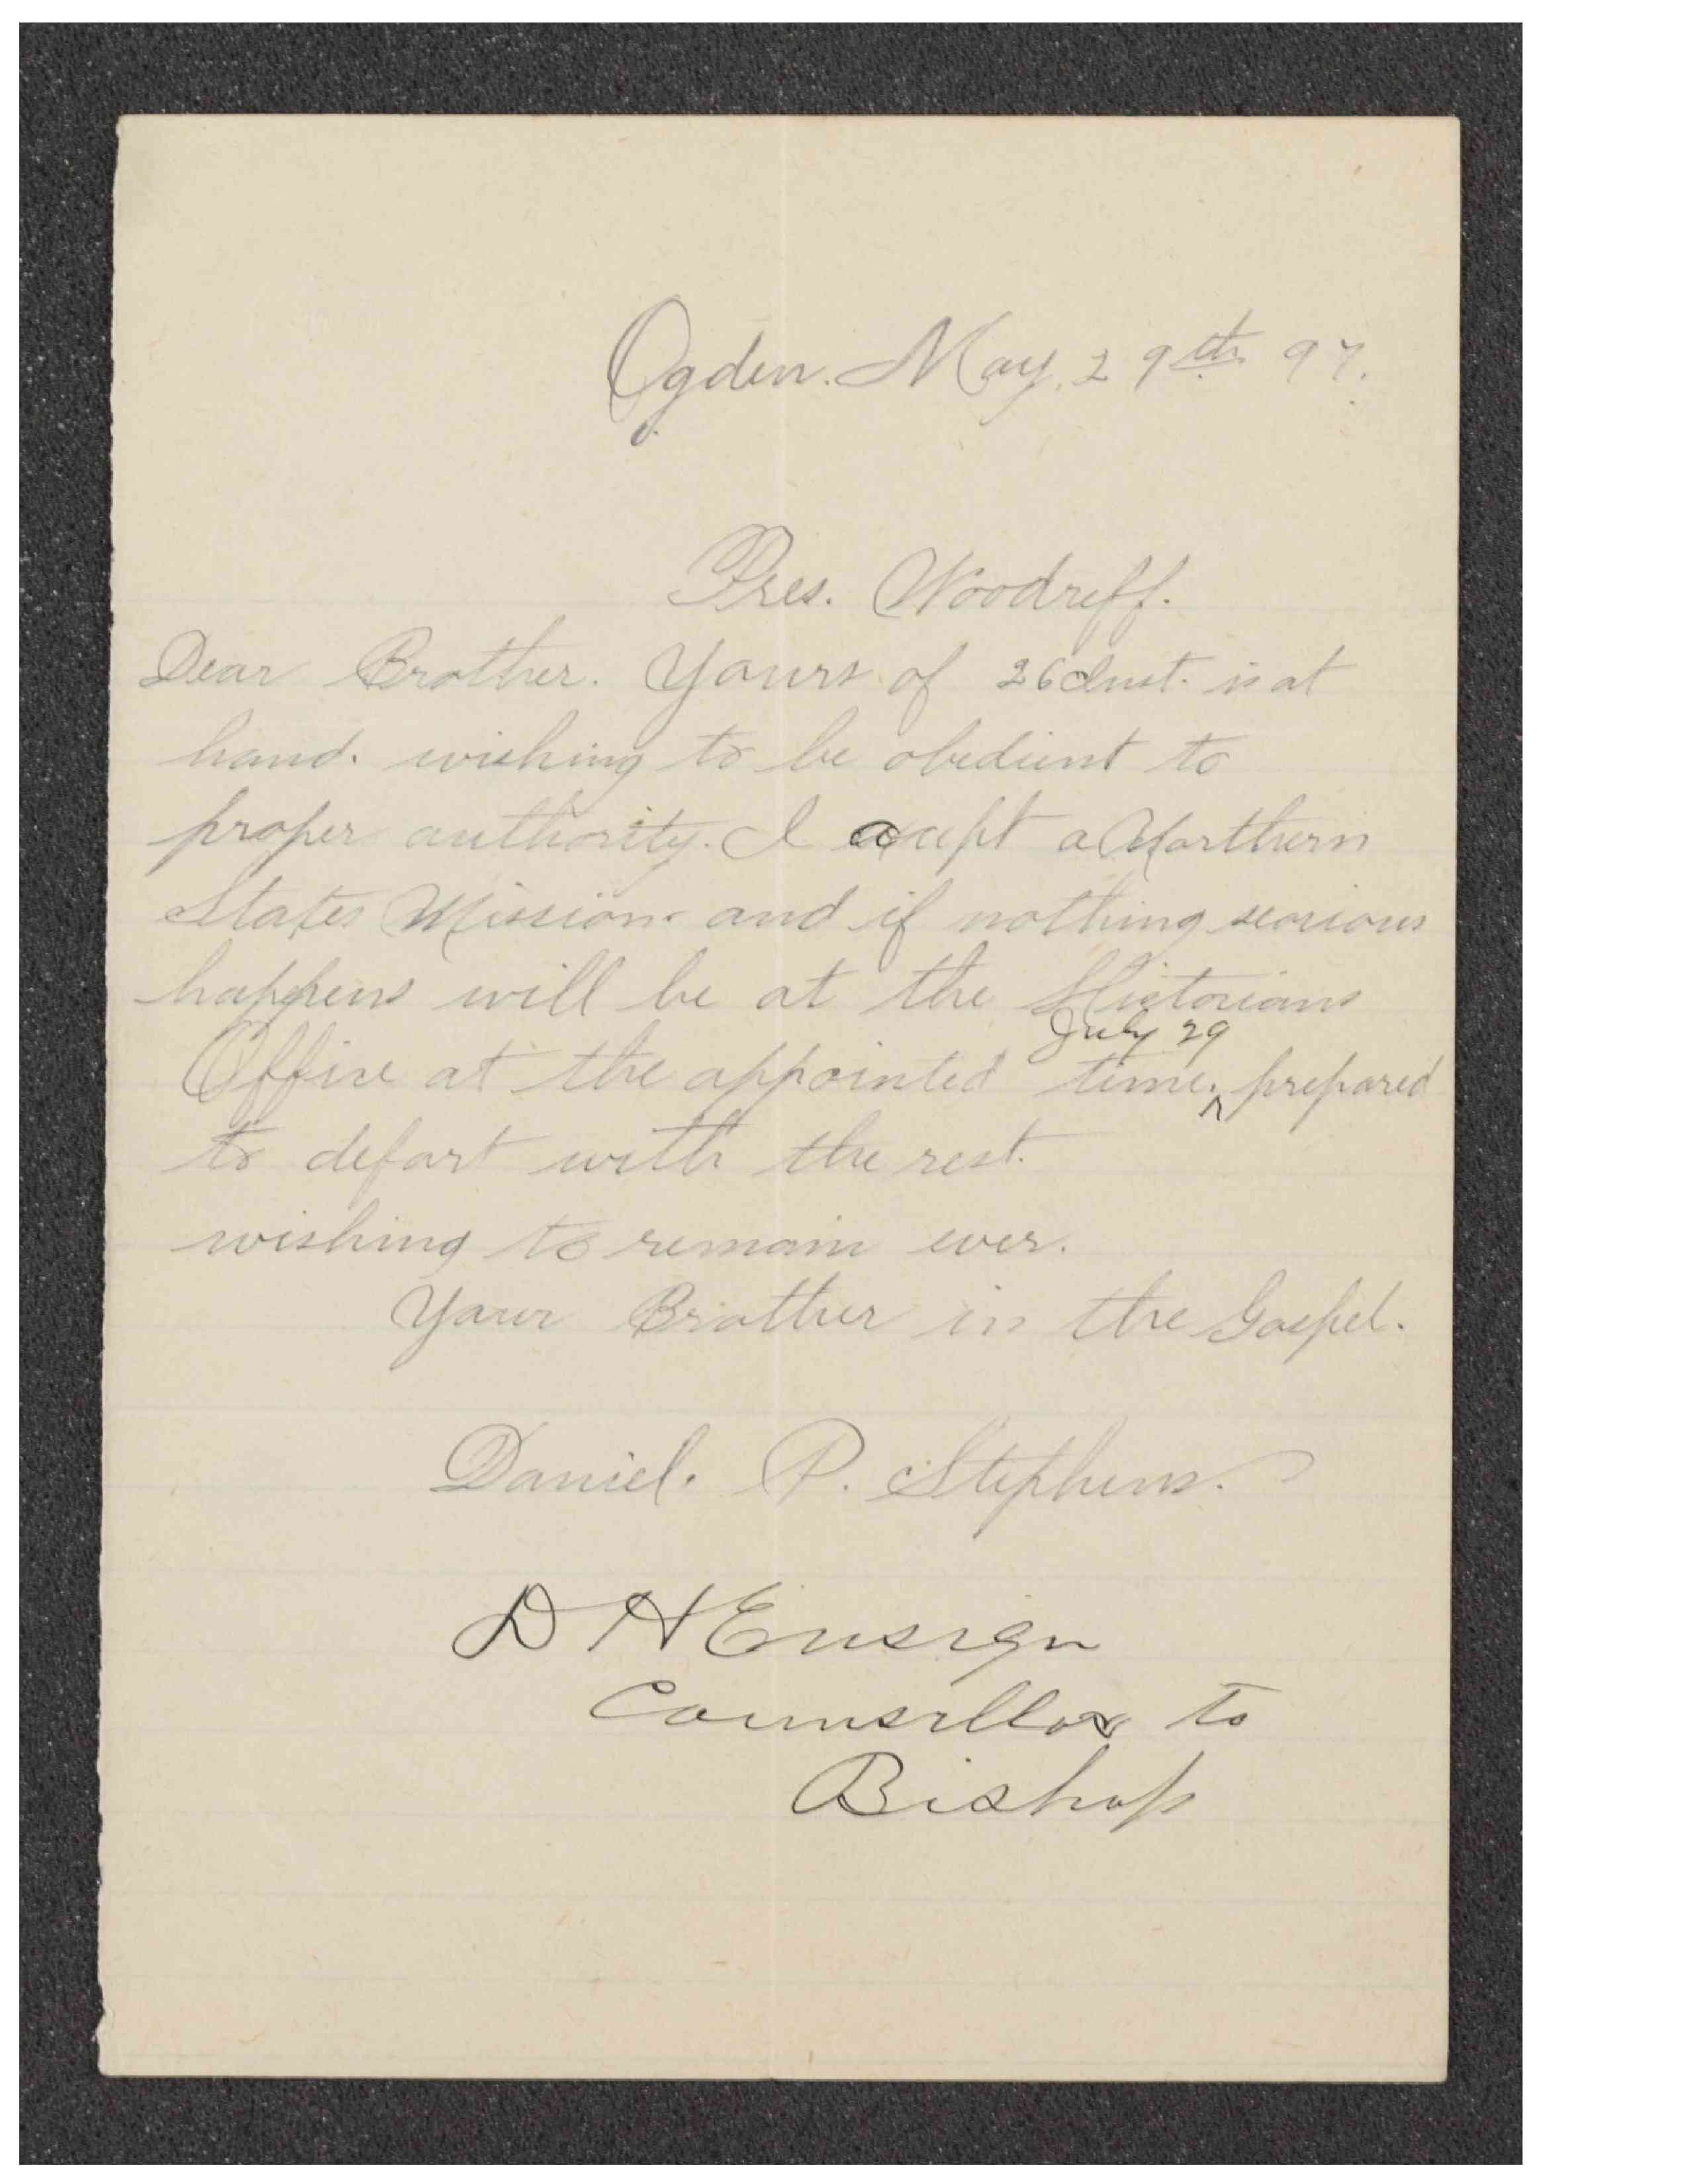 Ogden. May, 29th 97.
Pres. Woodruff.
Dear Brother. Yours of 26 Inst. is at
hand. wishing to be obedient to
proper authority. I accept a Northern
States Mission. and if nothing searious
happens will be at the Historians
July 29
Office at the appointed time. ^ prepared
to depart with the rest.
wishing to remain ever.
Your Brother in the Gospel.
Daniel. P. Stephens.
D H Ensign
Counsillor to
Bishop